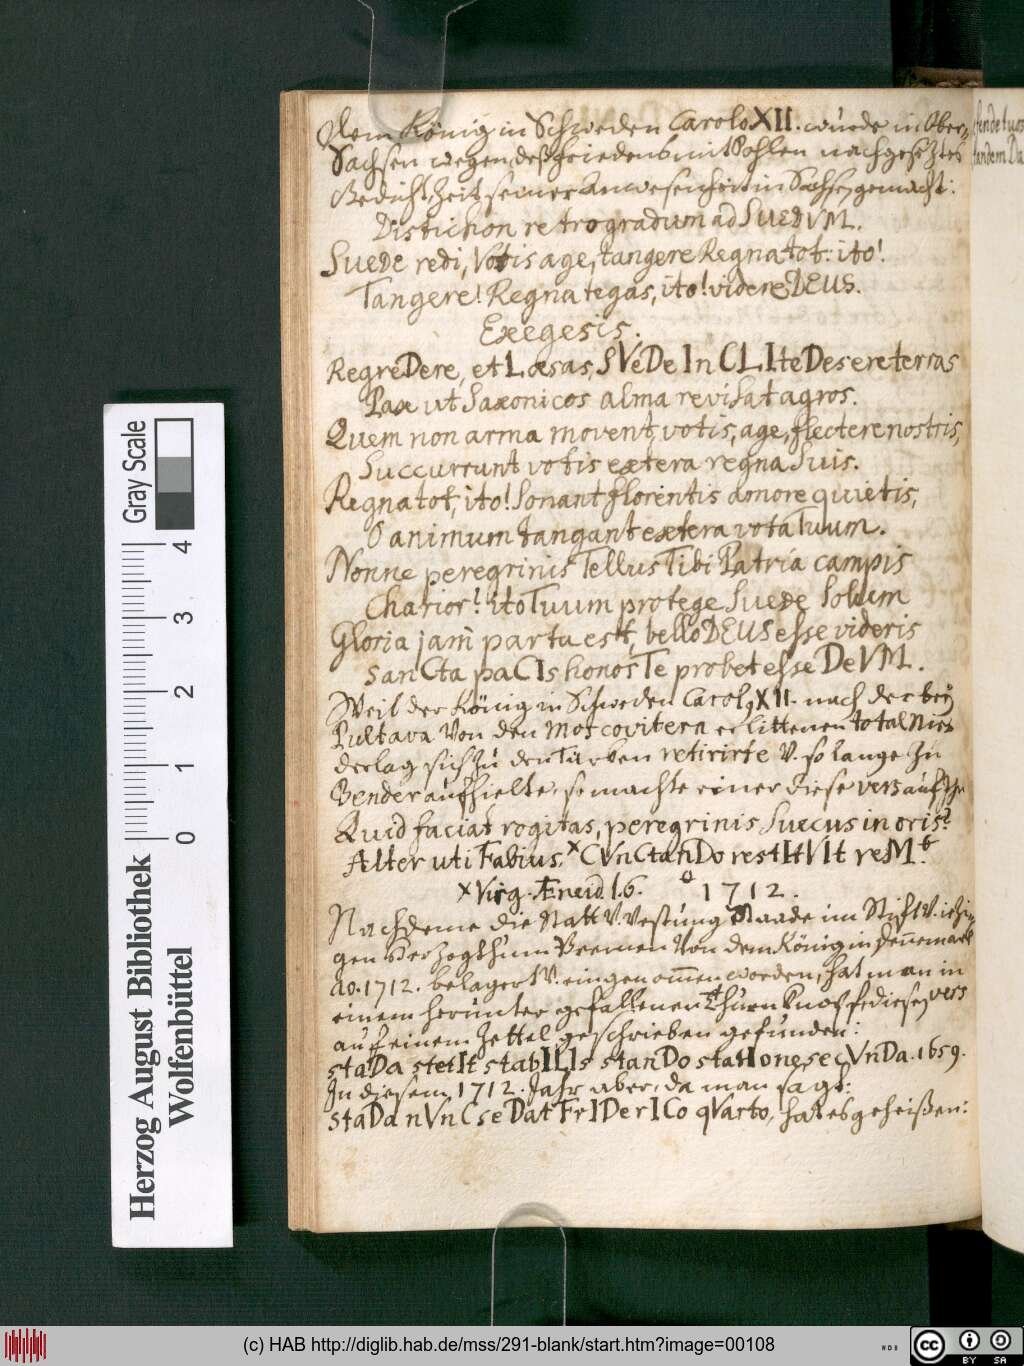 Dem König in Schweden Carolo XII. wurde in Ober-
Sachsen wegen deß friedens mit Pohlen nachgeseztes
Gedicht, Zeit seiner Anwesenheit in Sachsen gemacht:
Distichon retrogradum ad SUEDVM.
SUEDE redi, Votis age, tangere Regna tot: ito!
Tangere! Regna tegas, ito! videre DEUS.
Exegesis.
RegreDere, et Læsas, SVeDe InCLIte Desere terras
Pax ut Saxonicos alma revisat agros.
Quem non arma movent, votis, age, flectere nostris,
Succurrunt votis extera regna suis.
Regna tot, ito! sonant florentis amore quietis,
O animum tangant extera vota Tuum.
Nonne peregrinis Tellus Tibi Patria campis
Charior? ito Tuum protege Suede Solum
Gloria jam parta est, bello DEUS esse videris
sanCta paCIs honos Te probet esse DeVM.
Weil der König in Schweden Carol9 XII. nach der bey
Pultava Von den Moscovitern erlittenen total Nie-
derlag sich zu den Türken retirirte V. so lange zu
Bender aufhielte, so machte einer diese vers auf Ihn
Quid faciat rogitas, peregrinis Suecus in oris?
Alter uti Fabius, x CVnCtanDo restItVIt reM.
x Virg. Æneid. l. 6. 1712.
Nachdeme die Statt V. Vestung Staade im Stift V. ietzi-
gen Herzogthum Bremen Von dem König in Dennemark
ao. 1712. belagert V. eingenommen worden, hat man in
einem herunter gefallenen Thurn Knopfe diesen vers
auf einem Zettel geschrieben gefunden:
staDa stetIt stabILIs stanDo statIone seCVnDa. 1659.
In diesem 1712. Jahr aber, da man sagt:
staDa nVnC se Dat FrIDerICo qVarto, hat es geheißen:
Gray Scale
0 1 2 3 4
Herzog August Bibliothek
Wolfenbüttel
(c) HAB http://diglib.hab.de/mss/291-blank/start.htm?image=00108
CC BY SA